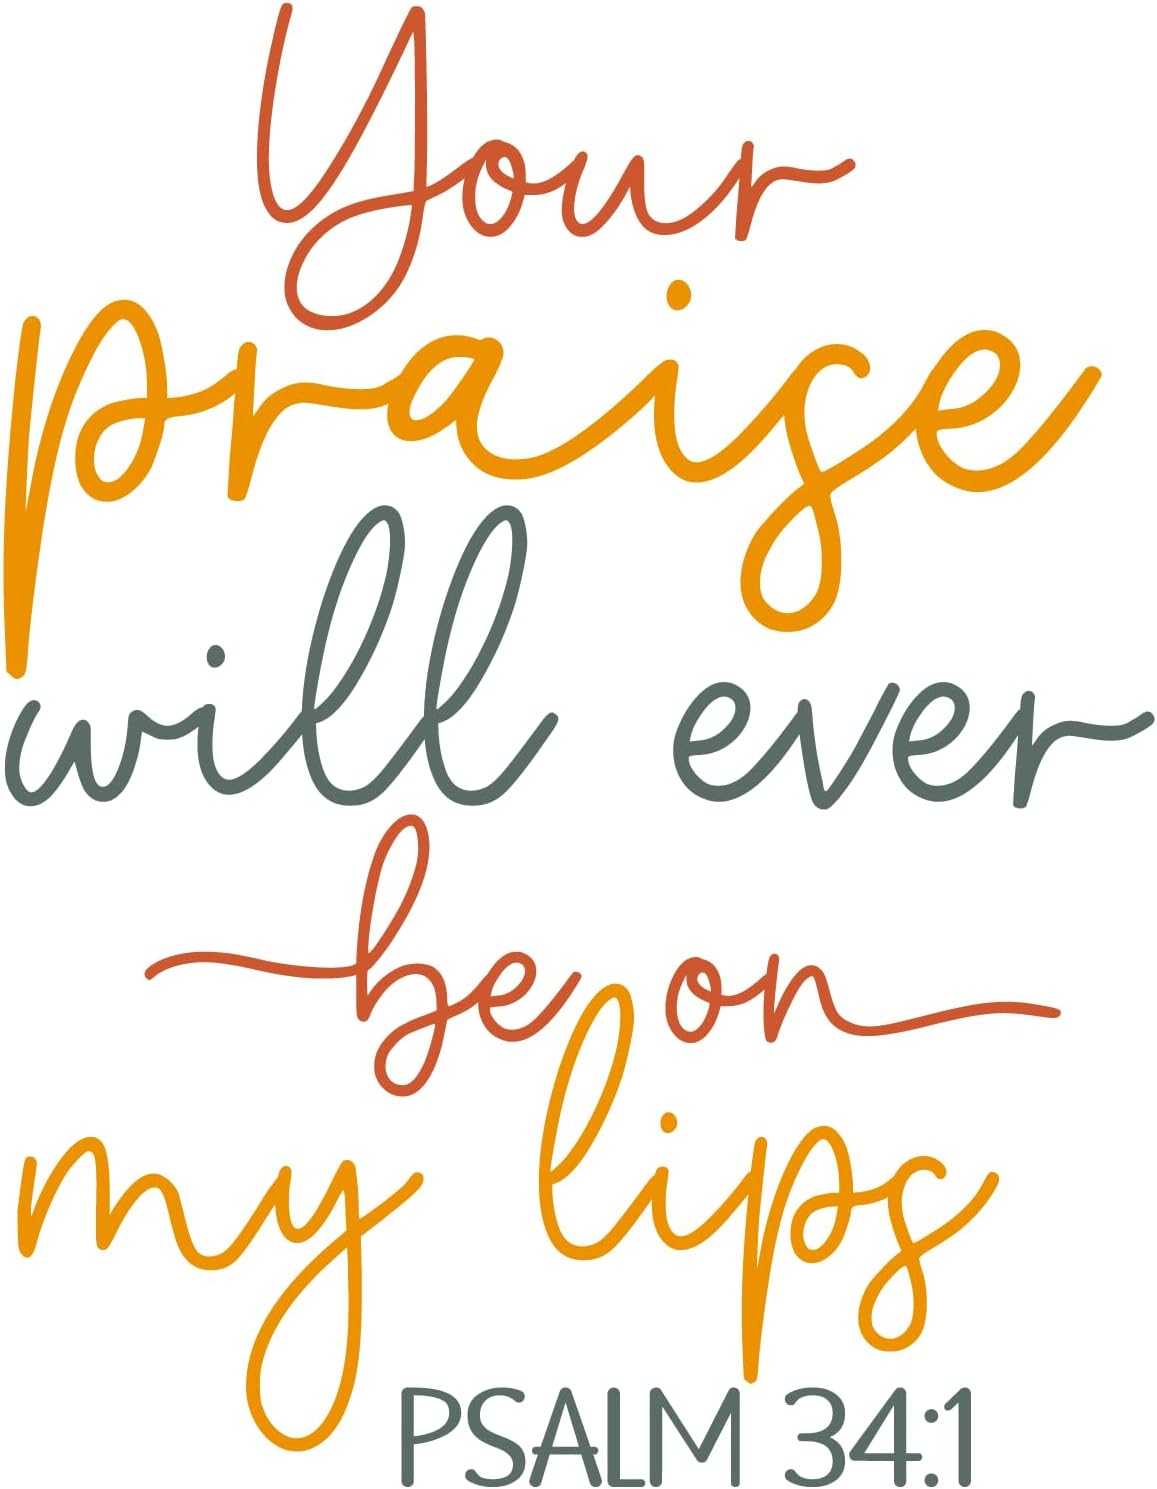 Your
praise
will ever
be on
my lips
PSALM 34:1